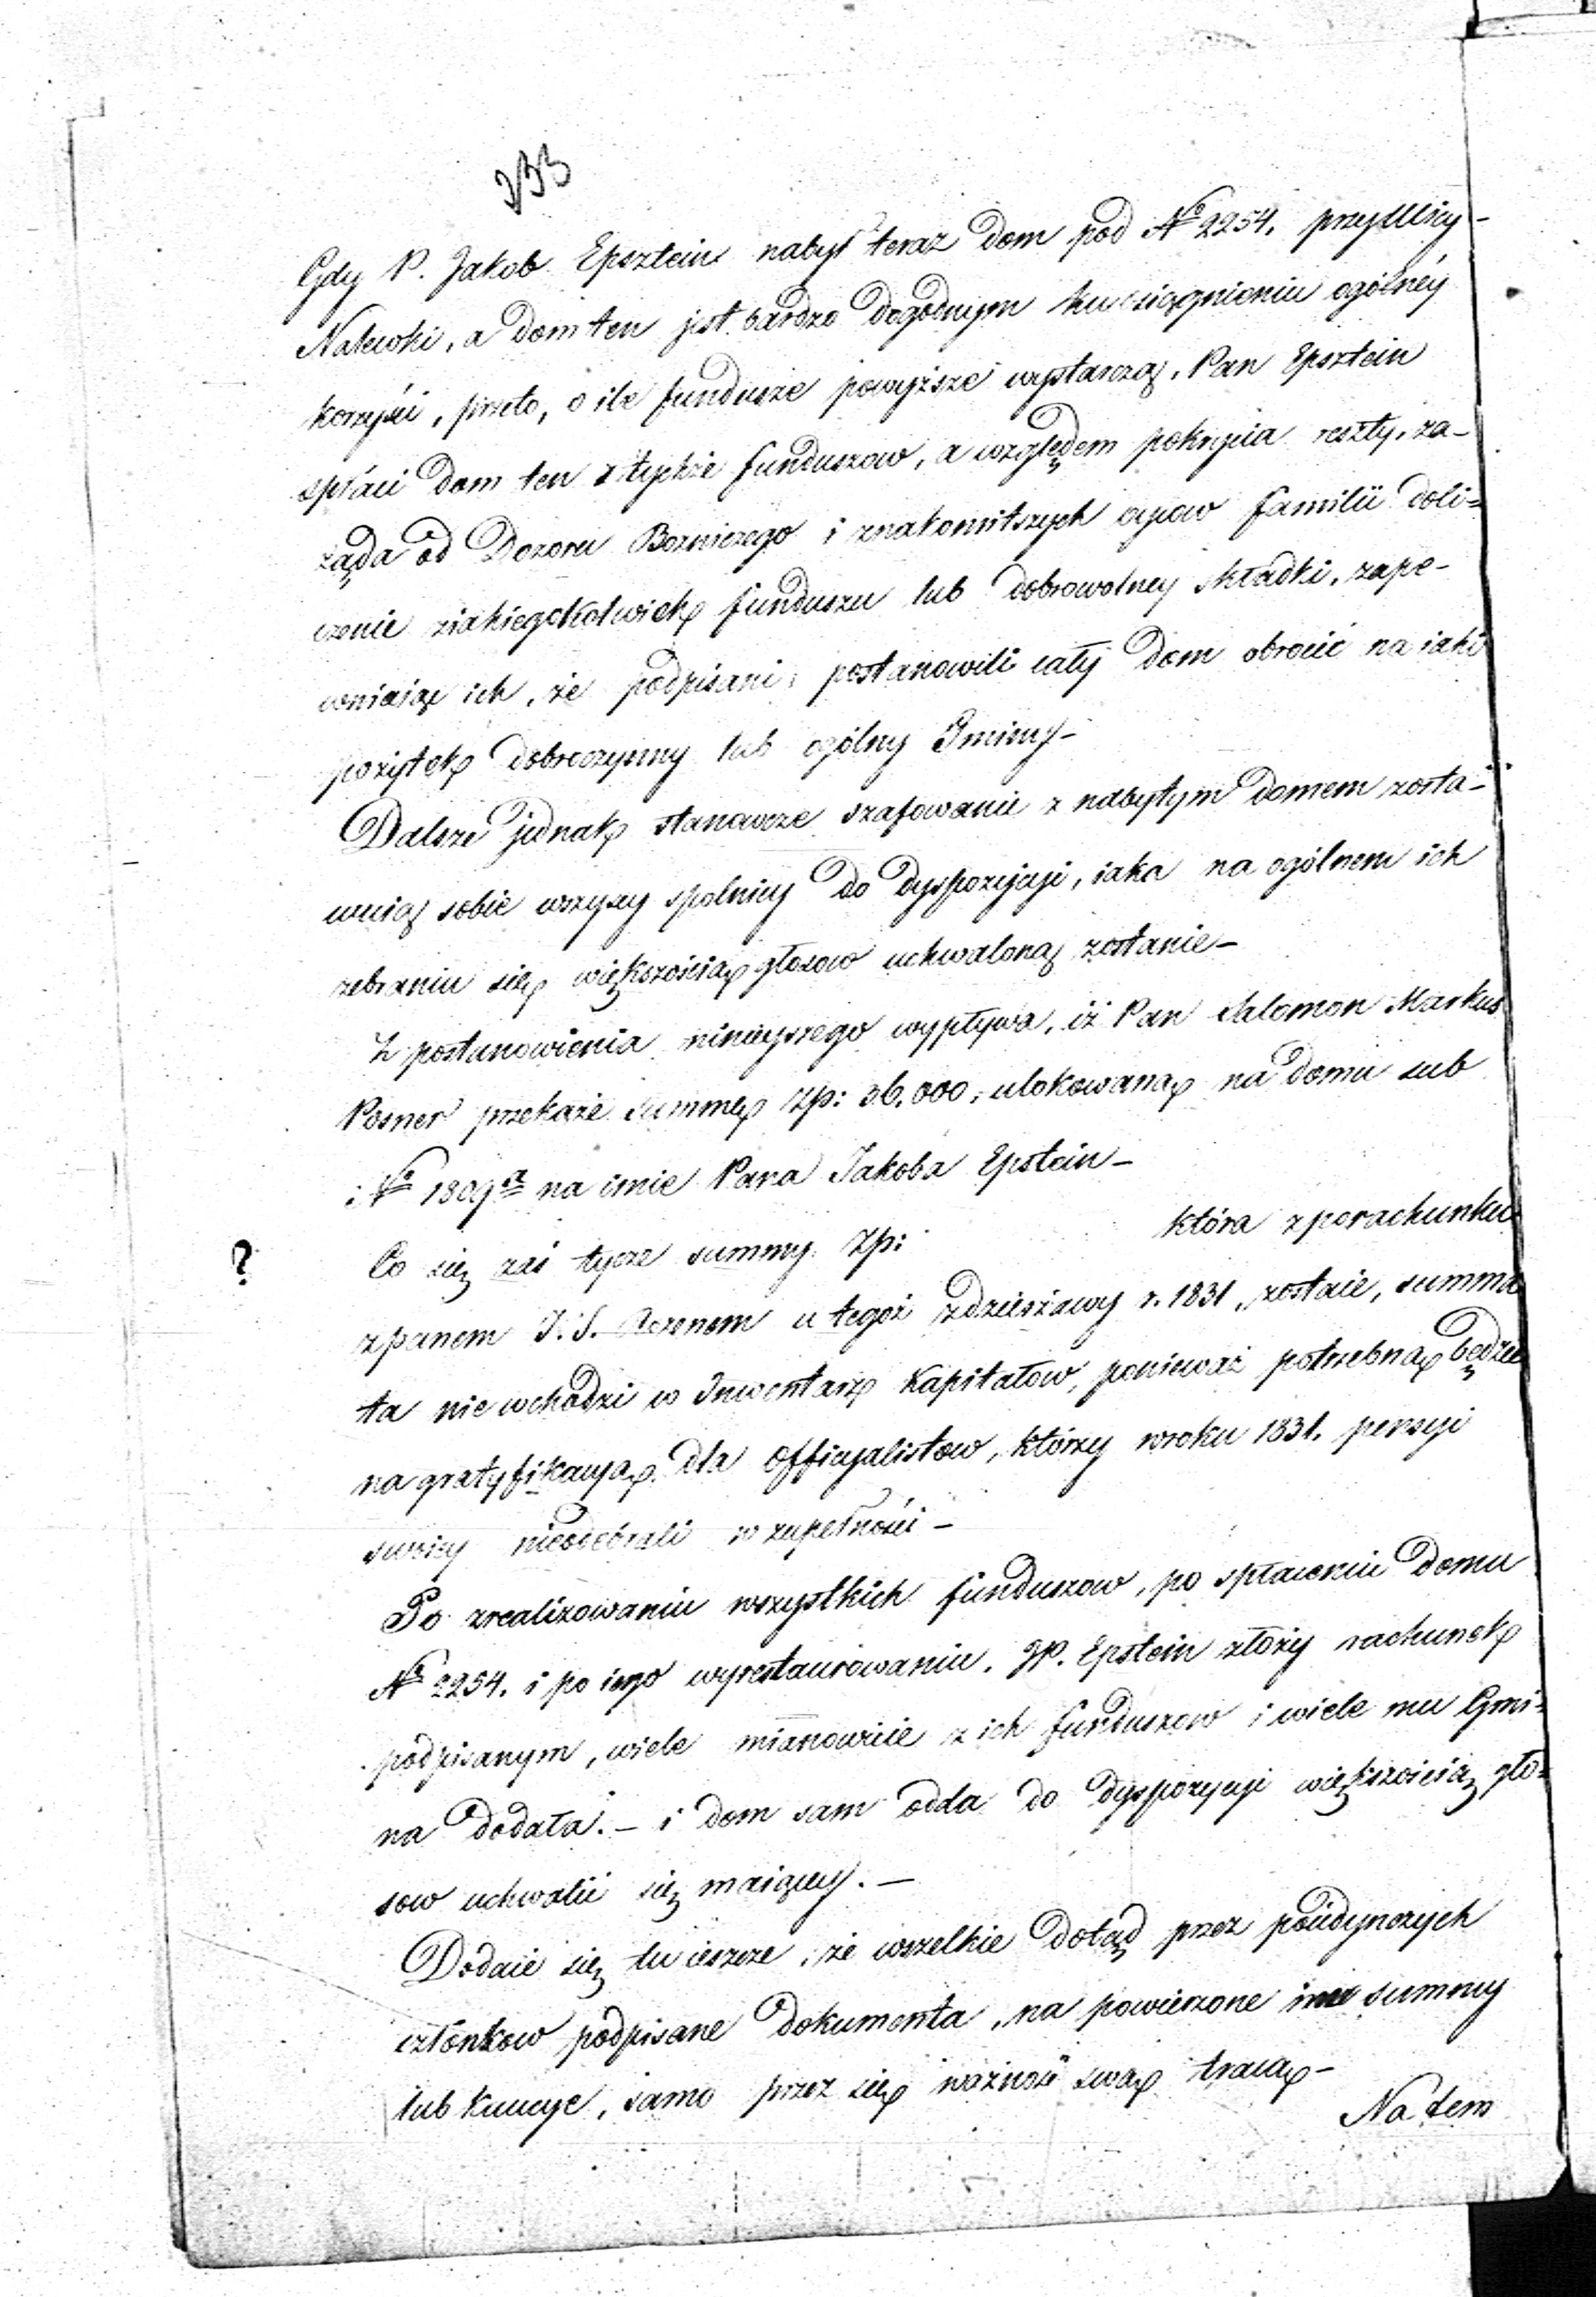 233
Gdy P. Jakob Epsztein nabył teraz dom pod № 2254. przy Ulicy
Nalewki, a dom ten jest bardzo dogodnym ku osiągnieniu ogólnéy
korzyści, przeto, o ile fundusze powyższe wystarczą, Pan Epsztein
spłaci dom ten z tychże funduszow, a względem pokrycia reszty, za-
żąda od Dozoru Bożniczego i znakomitszych oycow familii doli-
czenie ziakiegokolwiek funduszu lub dobrowolney składki, zape-
wniaiąc ich, że podpisani, postanowili cały dom obrocić na iaki
pożytek dobroczynny lub ogólny Gminy-
Dalsze jednak stanowcze szafowanie z nabytym domem zosta-
wuią sobie wszyscy spolnicy do dyspozycyi, iaka na ogólnem ich
zebraniu się większością głosow uchwaloną zostanie-
Z postanowienia ninieyszego wypływa, iż Pan Salomon Markus
Posner przekaże summę Zp: 36.000, ulokowaną na domu sub
№ 1809 a na imie Pana Jakoba Epstein-
? Co się zaś tycze summy Zp: która z porachunku
z panem J. S. Rozenem u tegoż zdzierżawy r. 1831, zostaie, summa
ta nie wchodzi w Inwentarz Kapitałow, ponieważ potrzebną będzie
na gratyfikacyą dla Officyalistow, którzy wroku 1831. pensyi
swoiey nieodebrali w zupełności-
Po zrealizowaniu wszystkich funduszow, po spłaceniu domu
№ 2254. i po iego wyrestaurowaniu, JP. Epstein złoży rachunek
podpisanym, wiele mianowicie z ich funduszow i wiele mu Gmi-
na dodała.- i dom sam odda do dyspozycyi większością gło-
sow uchwalić się maiącey.-
Dodaie się tu ieszcze, że wszelkie dotąd przez poiedynczych
członkow podpisane dokumenta, na powierzone im summy
lub kaucye, samo przez się ważność swą tracą-
Na tem